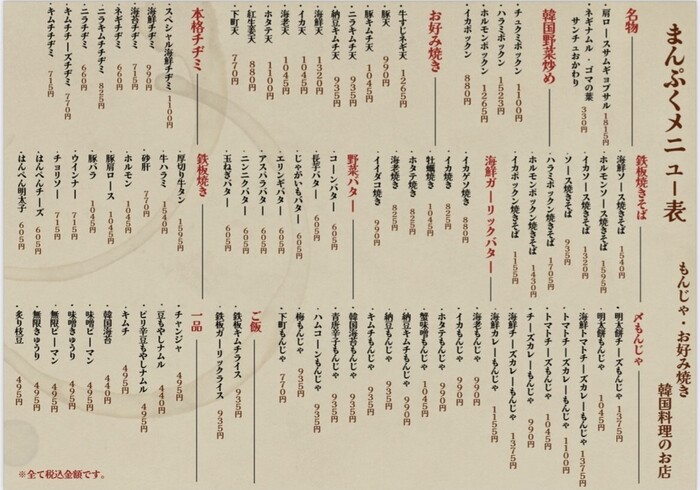 まんぷくメニュー表
もんじゃ・お好み焼き
韓国料理のお店
名物
・肩ロースサムギョプサル 1815円
・ネギナムル・ゴマの葉
サンチュおかわり 330円
韓国野菜炒め
・チュクミボックン 1100円
・ハラミボックン 1523円
・ホルモンボックン 1265円
・イカボックン 880円
お好み焼き
・牛すじネギ天 1265円
・豚天 990円
・豚キムチ天 1045円
・ニラキムチ天 935円
・納豆キムチ天 935円
・海鮮天 1320円
・イカ天 1045円
・海老天 1045円
・ホタテ天 1100円
・紅生姜天 880円
・下町天 770円
本格チヂミ
・スペシャル海鮮チヂミ 1100円
・海鮮チヂミ 990円
・海苔チヂミ 715円
・ネギチヂミ 660円
・ニラキムチチヂミ 825円
・ニラチヂミ 660円
・キムチチーズチヂミ 770円
・キムチチヂミ 715円
鉄板焼きそば
・海鮮ソース焼きそば 1540円
・ホルモンソース焼きそば 1595円
・イカソース焼きそば 1320円
・ソース焼きそば 935円
・ハラミボックン焼きそば 1705円
・ホルモンボックン焼きそば 1430円
・イカボックン焼きそば 1155円
海鮮ガーリックバター
・イカゲソ焼き 880円
・イカ焼き 825円
・牡蠣焼き 1045円
・ホタテ焼き 825円
・海老焼き 825円
・イイダコ焼き 990円
野菜バター
・コーンバター 605円
・長芋バター 605円
・じゃがいもバター 605円
・エリンギバター 605円
・アスパラバター 605円
・ニンニクバター 605円
・玉ねぎバター 605円
鉄板焼き
・厚切り牛タン 1595円
・牛ハラミ 1540円
・砂肝 770円
・ホルモン 1045円
・豚肩ロース 1045円
・豚バラ 1045円
・ウインナー 715円
・チョリソー 715円
・はんぺんチーズ 605円
・はんぺん明太子 605円
〆もんじゃ
・明太餅チーズもんじゃ 1375円
・明太餅もんじゃ 1045円
・海鮮トマトチーズカレーもんじゃ 1375円
・トマトチーズカレーもんじゃ 1100円
・トマトチーズもんじゃ 1045円
・チーズカレーもんじゃ 990円
・海鮮チーズカレーもんじゃ 1375円
・海鮮カレーもんじゃ 1155円
・海老もんじゃ 990円
・イカもんじゃ 990円
・ホタテもんじゃ 990円
・蟹味噌もんじゃ 1045円
・納豆キムチもんじゃ 990円
・納豆もんじゃ 935円
・キムチもんじゃ 935円
・韓国海苔もんじゃ 935円
・青唐辛子もんじゃ 935円
・ハムコーンもんじゃ 935円
・梅もんじゃ 935円
・下町もんじゃ 770円
ご飯
・鉄板キムチライス 935円
・鉄板ガーリックライス 935円
一品
・チャンジャ 495円
・豆もやしナムル 440円
・ピリ辛豆もやしナムル 495円
・キムチ 495円
・韓国海苔 440円
・味噌ピーマン 495円
・味噌きゅうり 495円
・無限ピーマン 495円
・無限きゅうり 495円
・炙り枝豆 495円
※全て税込金額です。